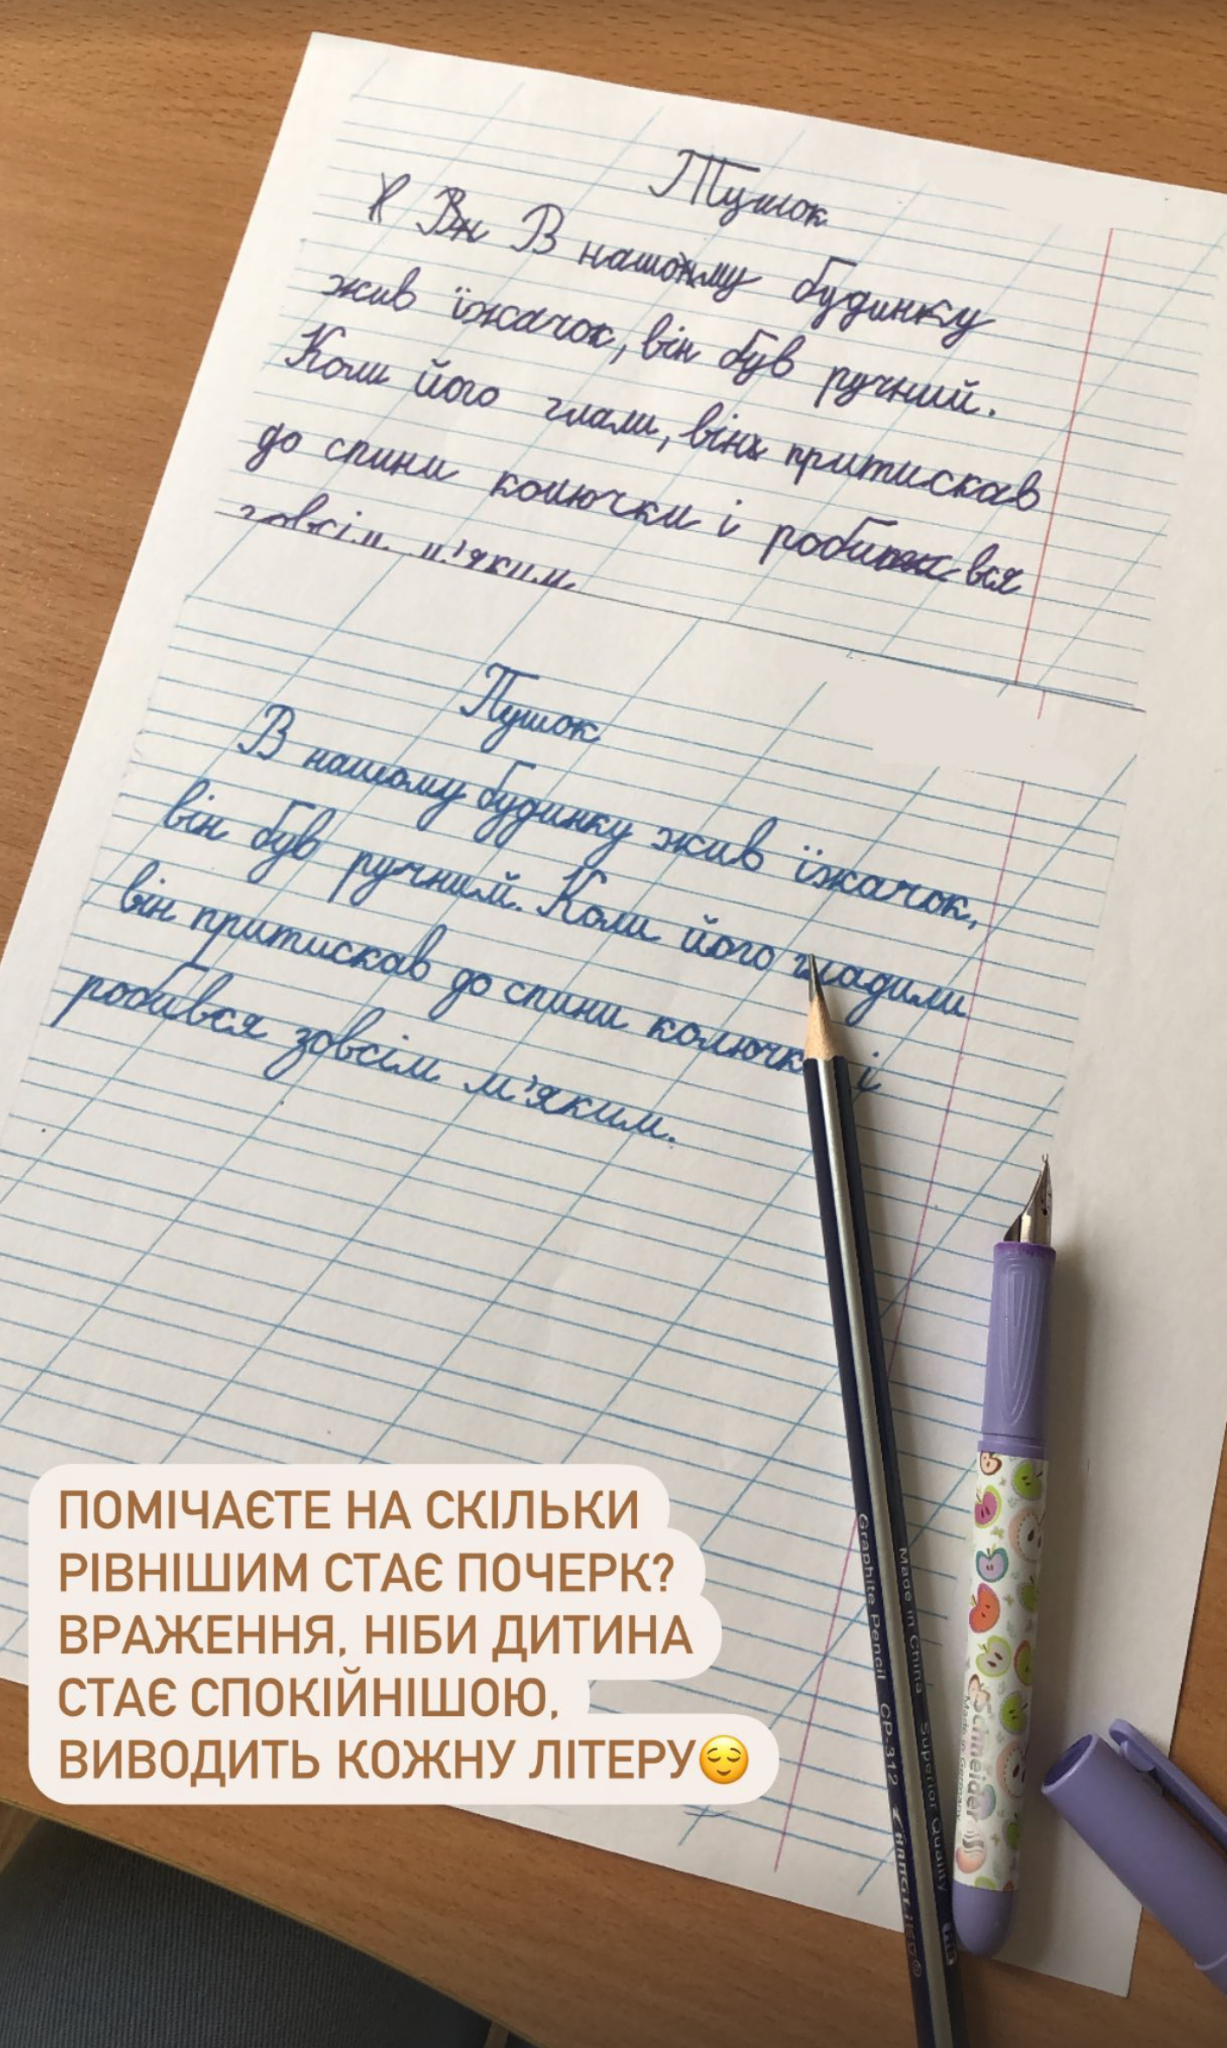 Пушок
В нашому будинку
жив їжачок, він був ручний.
Коли його глали, він притискав
до спини колючки і робився
зовсім м'яким
Пушок
В нашому будинку жив їжачок,
він був ручним. Коли його гладили
він притискав до спини колючки і
робився зовсім м'яким.
ПОМІЧАЄТЕ НА СКІЛЬКИ
РІВНІШИМ СТАЄ ПОЧЕРК?
ВРАЖЕННЯ, НІБИ ДИТИНА
СТАЄ СПОКІЙНІШОЮ,
ВИВОДИТЬ КОЖНУ ЛІТЕРУ😌
Graphite Pencil CP-312
Made in China Superior Quality
Schneider
Made in Germany